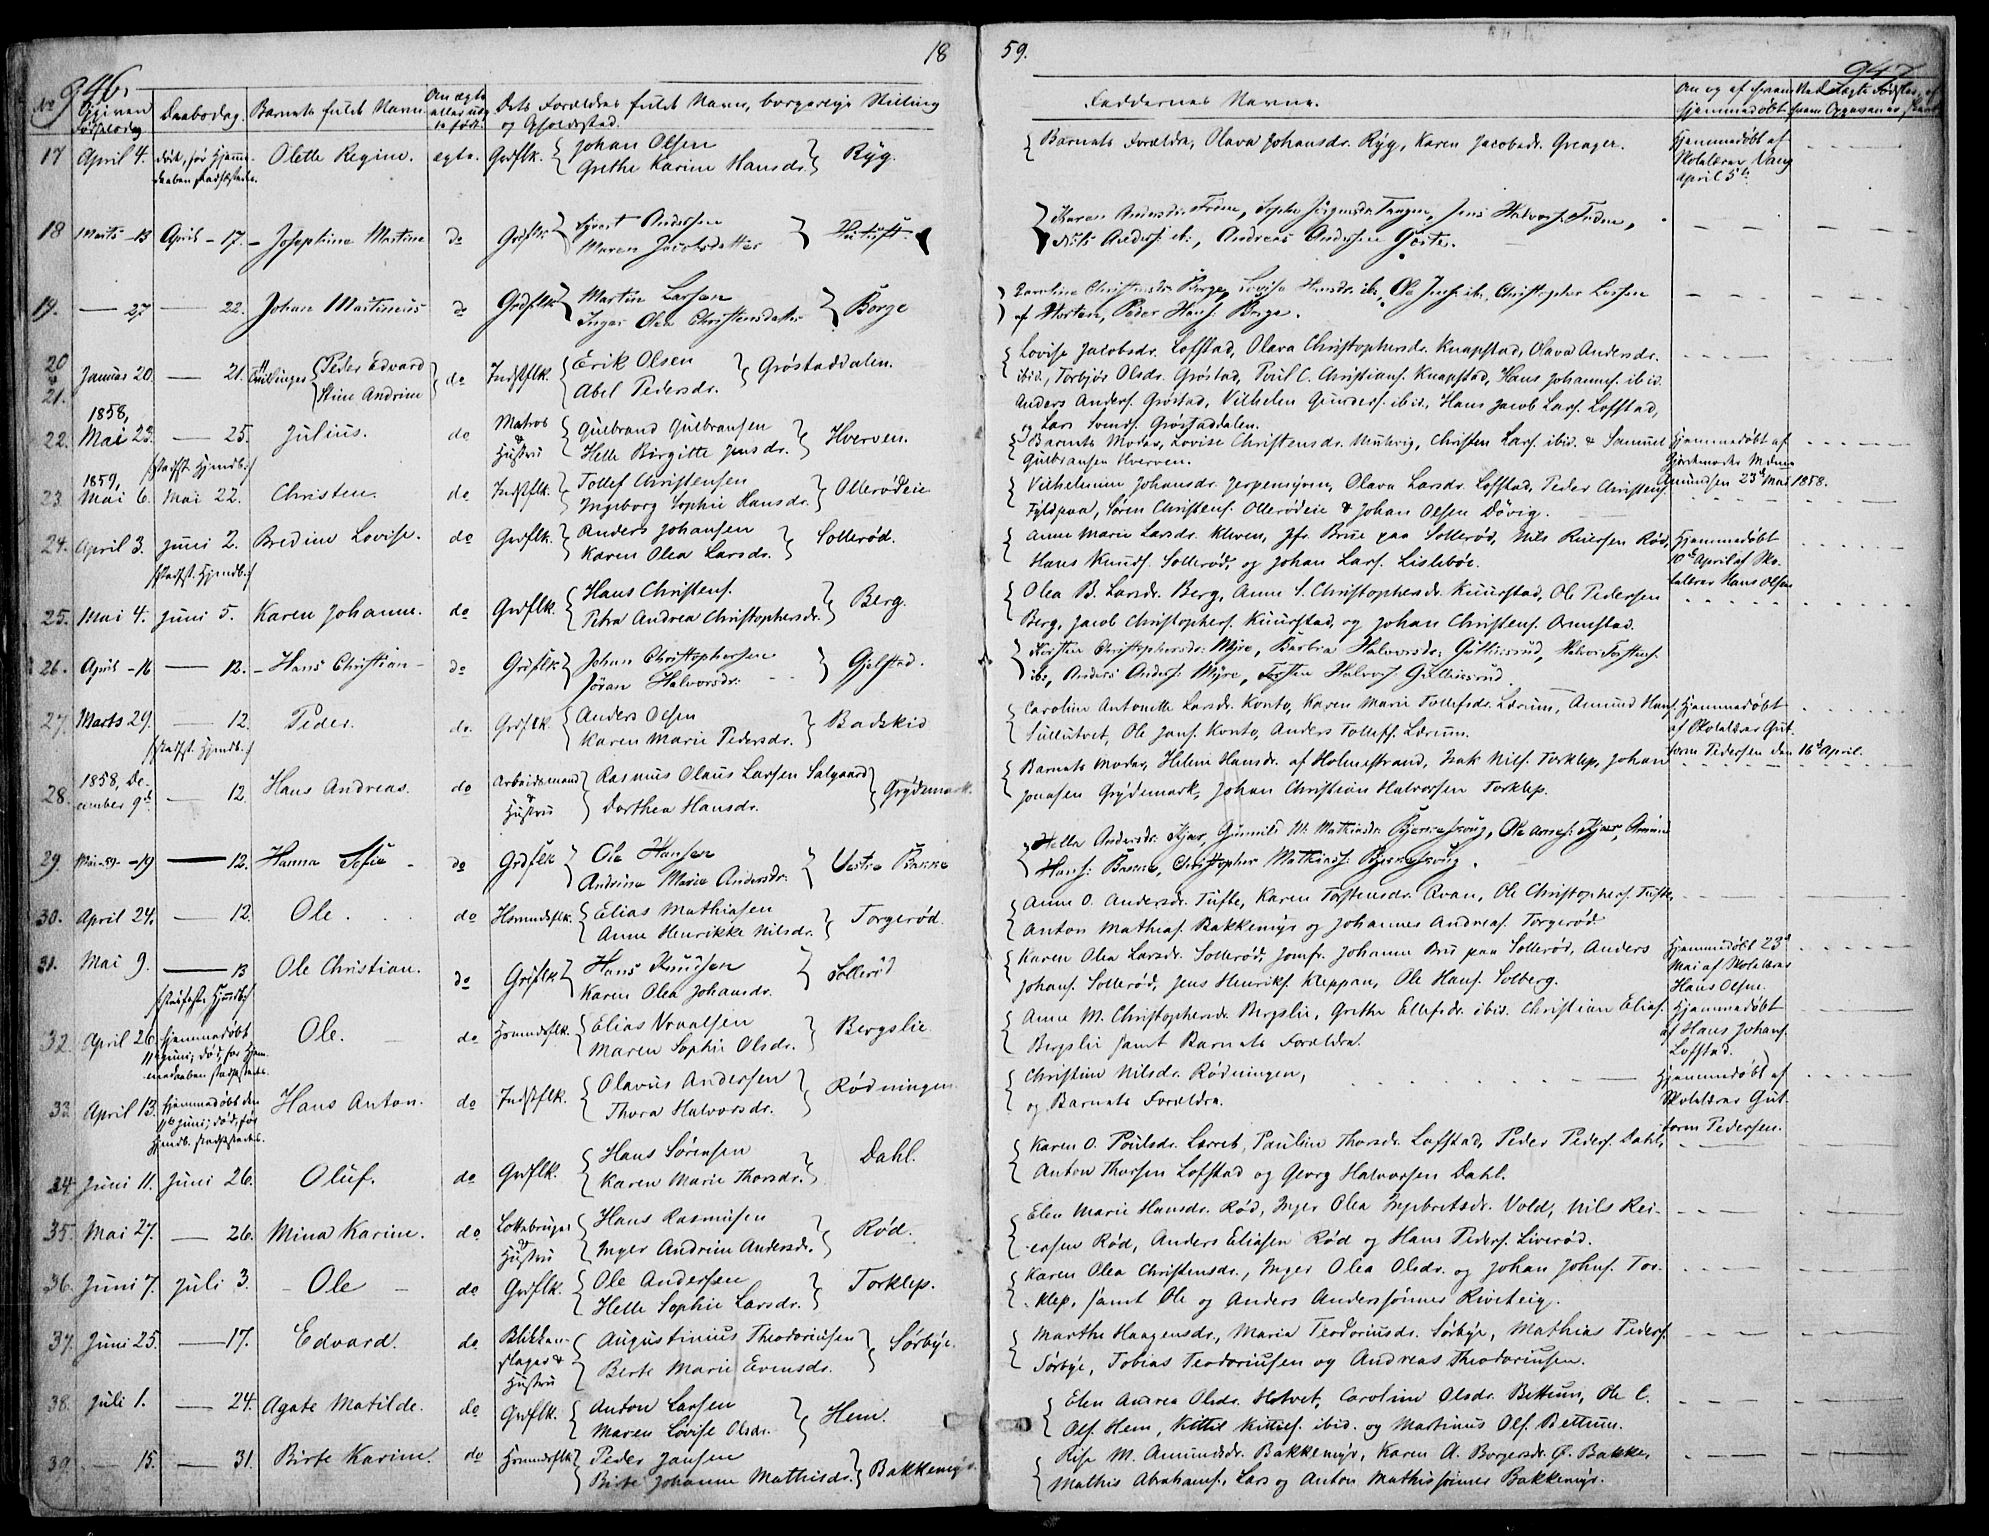 946.
18
No
Opgiven Fødselsdag
Daabsdag.
Barnets fulde Navn.
Om ægte eller uægte født.
Dets Forældres fulde Navn, borgerlige Stilling og Opholdssted.
17 April 4. død, før Hjemmedaaben stadfæstedes. Olette Regine. ægte. Grdflk. { Johan Olsen
Grethe Karine Hansdr. } Ryg.
18 Marts - 13 April - 17. - Josephine Martine do Grdflk { Syvert Andersen
Maren Jacobsdatter }
19. — 27 — 22. Johan Martinius do Grdflk { Martin Larsen
Inger Olea Christensdatter } Borge
20 & 21. Januar 20. — 21. Tvillinger { Peder Edvard
Stine Andrine } do Indstflk. { Erik Olsen
Abel Pedersdr. } Grøstaddalen.
22. 1858, Mai 23. — 25. Julius. do Matros & Hustru { Gulbrand Gulbransen
Helle Birgitte Jensdr. } Hverven.
/stadfst. Hjmdb./
23. 1859, Mai 6. Mai 22. Christen. do Indstflk. { Tollef Christensen
Ingeborg Sophie Hansdr. } Ollerødeie
24. April 3. Juni 2. Bredine Lovise. do Grdflk. { Anders Johansen
Karen Olea Larsdr. } Sollerød.
/stadfst. Hjmdb./
25. Mai 4. Juni 5. Karen Johanne. do Grdflk. { Hans Christens.
Petra Andrea Christophersdr. } Berg.
26. April - 16 — 12. - Hans Christian - do Grdflk { Johan Christophersen
Jøran Halvorsdr. } Gjelstad.
27. Marts 29. — 12. Peder. do. Grdflk. { Anders Olsen
Karen Marie Pedersdr. } Badskid
/stadfst. Hjmdb./
28. 1858, December 9d — 12. Hans Andreas. do Arbeidsmand & Hustru { Rasmus Olaus Larsen Salgaard
Dorthea Hansdr. } Grydemark.
29. Mai - 59 - 19 — 12. Hanna Sofie - do Grdflk { Ole Hansen
Andrine Marie Andersdr. } Vestre Bærre
30. April 24. — 12. Ole. do Hsmndsflk. { Elias Mathiasen
Anne Henrikke Nilsdr. } Torgerød.
31. Mai 9. — 13 Ole Christian. do Grdflk { Hans Knudsen
Karen Olea Johansdr. } Sollerød
/stadfæstet Hjmdb./
32. April 26. Hjemmedøbt 11te Juni; død, før Hjemmedaaben stadfæstedes. Ole. do Hsmndsflk. { Elias Vraalsen
Maren Sophie Olsdr. } Bergslie.
33. April 13. Hjemmedøbt den 11te Juni; død, før Hjmdb. stadfæstedes. Hans Anton. do Indstflk. { Olavus Andersen
Thora Halvorsdr. } Rødningen.
34. Juni 11. Juni 26. Oluf. do Grdflk. { Hans Sørensen
Karen Marie Thorsdr. } Dahl.
35. Mai 27. — 26. Mina Karine. do Lottebruger & Hustru { Hans Rasmusen
Inger Andrine Andersdr. } Rød.
36. Juni 7. Juli 3. - Ole - do Grdflk. { Ole Andersen
Helle Sophie Larsdr. } Torklep.
37. Juni 25. — 17. Edvard. do Blikkenslager & Hustru { Augustinius Theodoriusen
Berte Marie Evensdr. } Sørbye.
38. Juli 1. — 24. Agate Matilde. do Grdflk. { Anton Larsen
Maren Lovise Olsdr. } Hem.
39. — 15. — 31. Birte Karine. do Hsmndsflk { Peder Jansen
Birte Johanne Mathisdr. } Bakkemyr.
59.
947
Faddernes Navne.
Om og af hvem hjemmedøbt
{ Barnets Forældre, Olava Johansdr. Ryg, Karen Jacobsdr. Greager. Hjemmedøbt af Skolelærer Vang April 5te
{ Karen Andersdr. Freden, Sophie Jørgensdr. Tangen, Jens Halvors. Freden,
Nils Anders. ib:, Andreas Andersen Joste.
Caroline Christensdr. Borge, Lovise Hansdr. ib:, Ole Jens. ib:, Christopher Larsen
af Horten, Peder Hans. Borge.
{ Lovise Jacobsdr. Lofstad, Olava Christophersdr. Knapstad, Olava Andersdr.
ibid., Torbjør Olsdr. Grøstad, Poul C. Christians. Knapstad, Hans Johannes. ibid.
Anders Anders. Grøstad, Vilhelm Gunders. ibid., Hans Jacob Lars. Lofstad,
og Lars Svends. Grøstaddalen.
{ Barnets Moder, Lovise Christensdr. Muhrig, Christen Lars. ibid. & Samuel
Gulbransen Hverven. Hjemmedøbt af Gjordemoder Madm Amundsen 23de Mai 1858.
{ Vilhelmine Johansdr. Jerpensjorn, Olava Larsdr. Lofstad, Peder Christens.
Fyldpaa, Søren Christens. Ollerødeie & Johan Olsen Døvig.
{ Anne Marie Larsdr. Kleven, Jfr. Brue paa Sollerød, Nils Reiersen Rød,
Hans Knuds. Sollerød, og Johan Lars. Lislebøe. Hjemmedøbt 10de April af Skolelærer Hans Olsen
{ Olea B. Larsdr. Berg, Anne S. Christophersdr. Knurstad, Ole Pedersen
Berg, Jacob Christophers. Knurstad, og Johan Christens. Ormestad.
{ Kirstine Christophersdr. Myre, Barbra Halvorsdr. Gullixrud, Halvor Torstens.
ib:, Anders Anders. Myre, Torsten Halvors. Gullixrud
{ Caroline Antonette Larsdr. Konto, Karen Marie Tollefsdr. Lærum, Amund Hans.
Sulutvet, Ole Jans. Konto, Anders Tollefs. Lærum. Hjemmedøbt af Skolelærer Guttorm Pedersen den 16de April.
{ Barnets Moder, Helene Hansdr. af Holmestrand, Isak Nils. Torklep, Johan
Jonasen Grydemark, Johan Christian Halvorsen Torklep.
{ Helle Andersdr. Kjær, Gunnild M. Mathiasdr. Bjerreskoug, Ole Arnes. Kjær, Amund
Hans. Bærre, Christopher Mathias. Bjerreskoug.
{ Anne O. Andersdr. Tufte, Karen Torstensdr. Qvan, Ole Christophers. Tufte,
Anton Mathias. Bakkemyr og Johannes Andreas. Torgerød.
{ Karen Olea Larsdr. Sollerød, Jomfr. Johanne Bru paa Sollerød, Anders
Johans. Sollerød, Jens Henriks. Kleppan, Ole Hans. Solberg. Hjemmedøbt 23d Mai af Skolelærer Hans Olsen.
{ Anne M. Christophersdr. Bergslie, Grethe Ellefsdr. ibid. Christian Elias.
Bergslie samt Barnets Forældre. Hjemmedøbt af Hans Johans. Lofstad.
{ Christine Nilsdr. Rødningen,
og Barnets Forældre. Hjemmedøbt af Skolelærer Guttorm Pedersen.
{ Karen O. Poulsdr. Lærret, Pauline Thorsdr. Lofstad, Peder Peders. Dahl,
Anton Thorsen Lofstad og Georg Halvorsen Dahl.
{ Elen Marie Hansdr. Rød, Inger Olea Ingebretsdr. Vold, Nils Reiersen Rød, Anders Eliasen Rød og Hans Peders. Liverød.
{ Karen Olea Christensdr., Inger Olea Olsdr. og Johan Johns. Torklep, samt Ole og Anders Anderssønner Riveteig.
{ Marthe Haagensdr., Maria Teodoriusdr. Sørbye, Mathias Peders.
Sørbye, Tobias Teodoriusen og Andreas Theodoriusen.
{ Elen Andrea Olsdr. Hotvet, Caroline Olsdr. Bettum, Ole C.
Ols. Hem, Kittil Kittels. ibid. og Martinus Ols. Bettum.
{ Rise M. Amundsdr. Bakkemyr, Karen A. Borgersdr. Ø. Bakke,
Mathis Abrahams., Lars og Anton Mathissønner Bakkemyr.